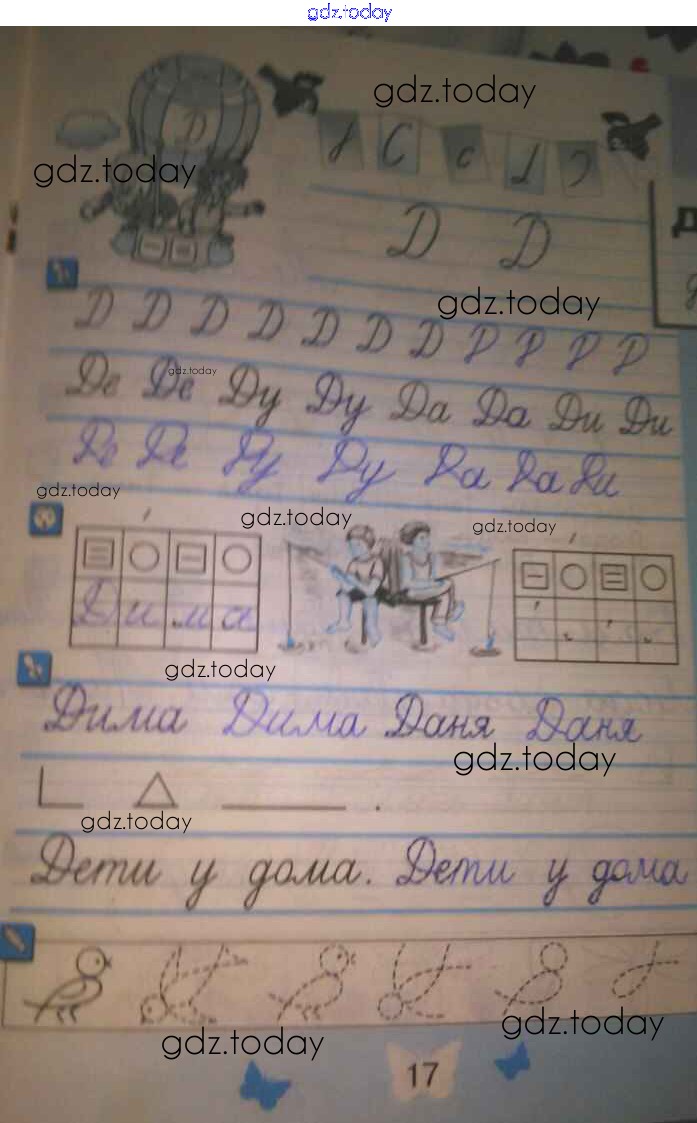 gdz.today
gdz.today
Д
gdz.today
Д Д
gdz.today
Д Д Д Д Д Д Д Р Р Р Р
gdz.today
Де Де Ду Ду Да Да Ди Ди
Де Де Ду Ду Да Да Ди
gdz.today
gdz.today
gdz.today
Дима
gdz.today
Дима Дима Даня Даня
gdz.today
gdz.today
Дети у дома. Дети у дома
gdz.today
gdz.today
17